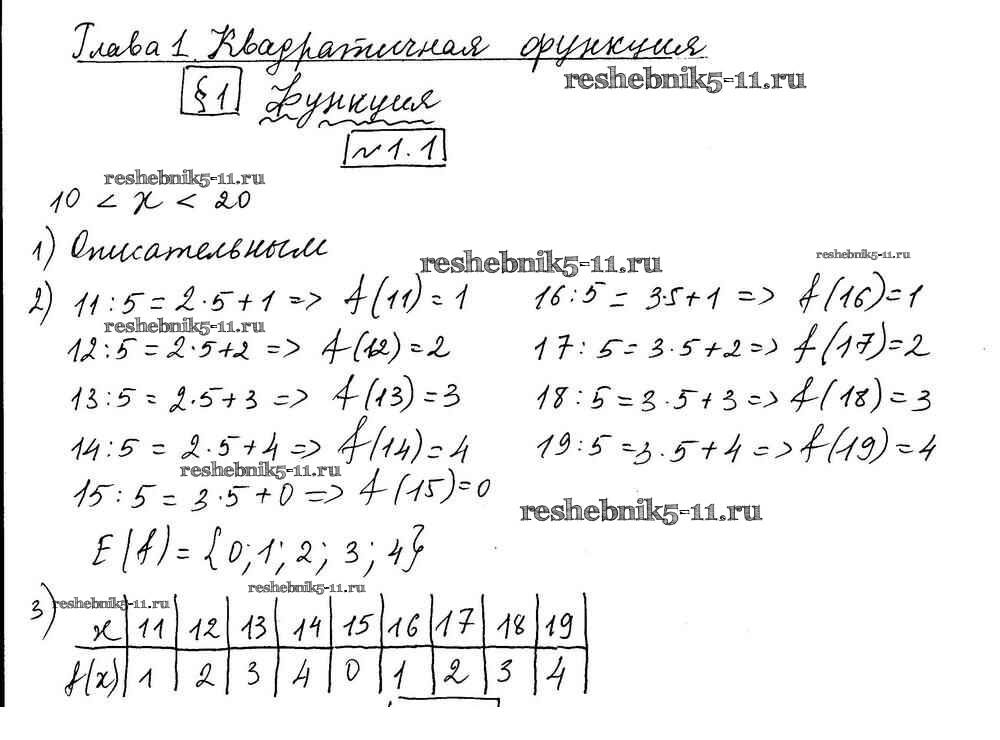 Глава 1. Квадратичная функция
reshebnik5-11.ru
§1 Функция
№1.1
reshebnik5-11.ru
10 < x < 20
1) Описательным
reshebnik5-11.ru
reshebnik5-11.ru
2) 11:5=2·5+1 => f(11)=1 16:5=3·5+1 => f(16)=1
reshebnik5-11.ru
12:5=2·5+2 => f(12)=2 17:5=3·5+2=> f(17)=2
13:5=2·5+3 => f(13)=3 18:5=3·5+3=> f(18)=3
14:5=2·5+4=> f(14)=4 19:5=3·5+4=> f(19)=4
reshebnik5-11.ru
15:5=3·5+0=> f(15)=0
reshebnik5-11.ru
E(f)={0;1;2;3;4}
reshebnik5-11.ru
3)
reshebnik5-11.ru
x 11 12 13 14 15 16 17 18 19
f(x) 1 2 3 4 0 1 2 3 4